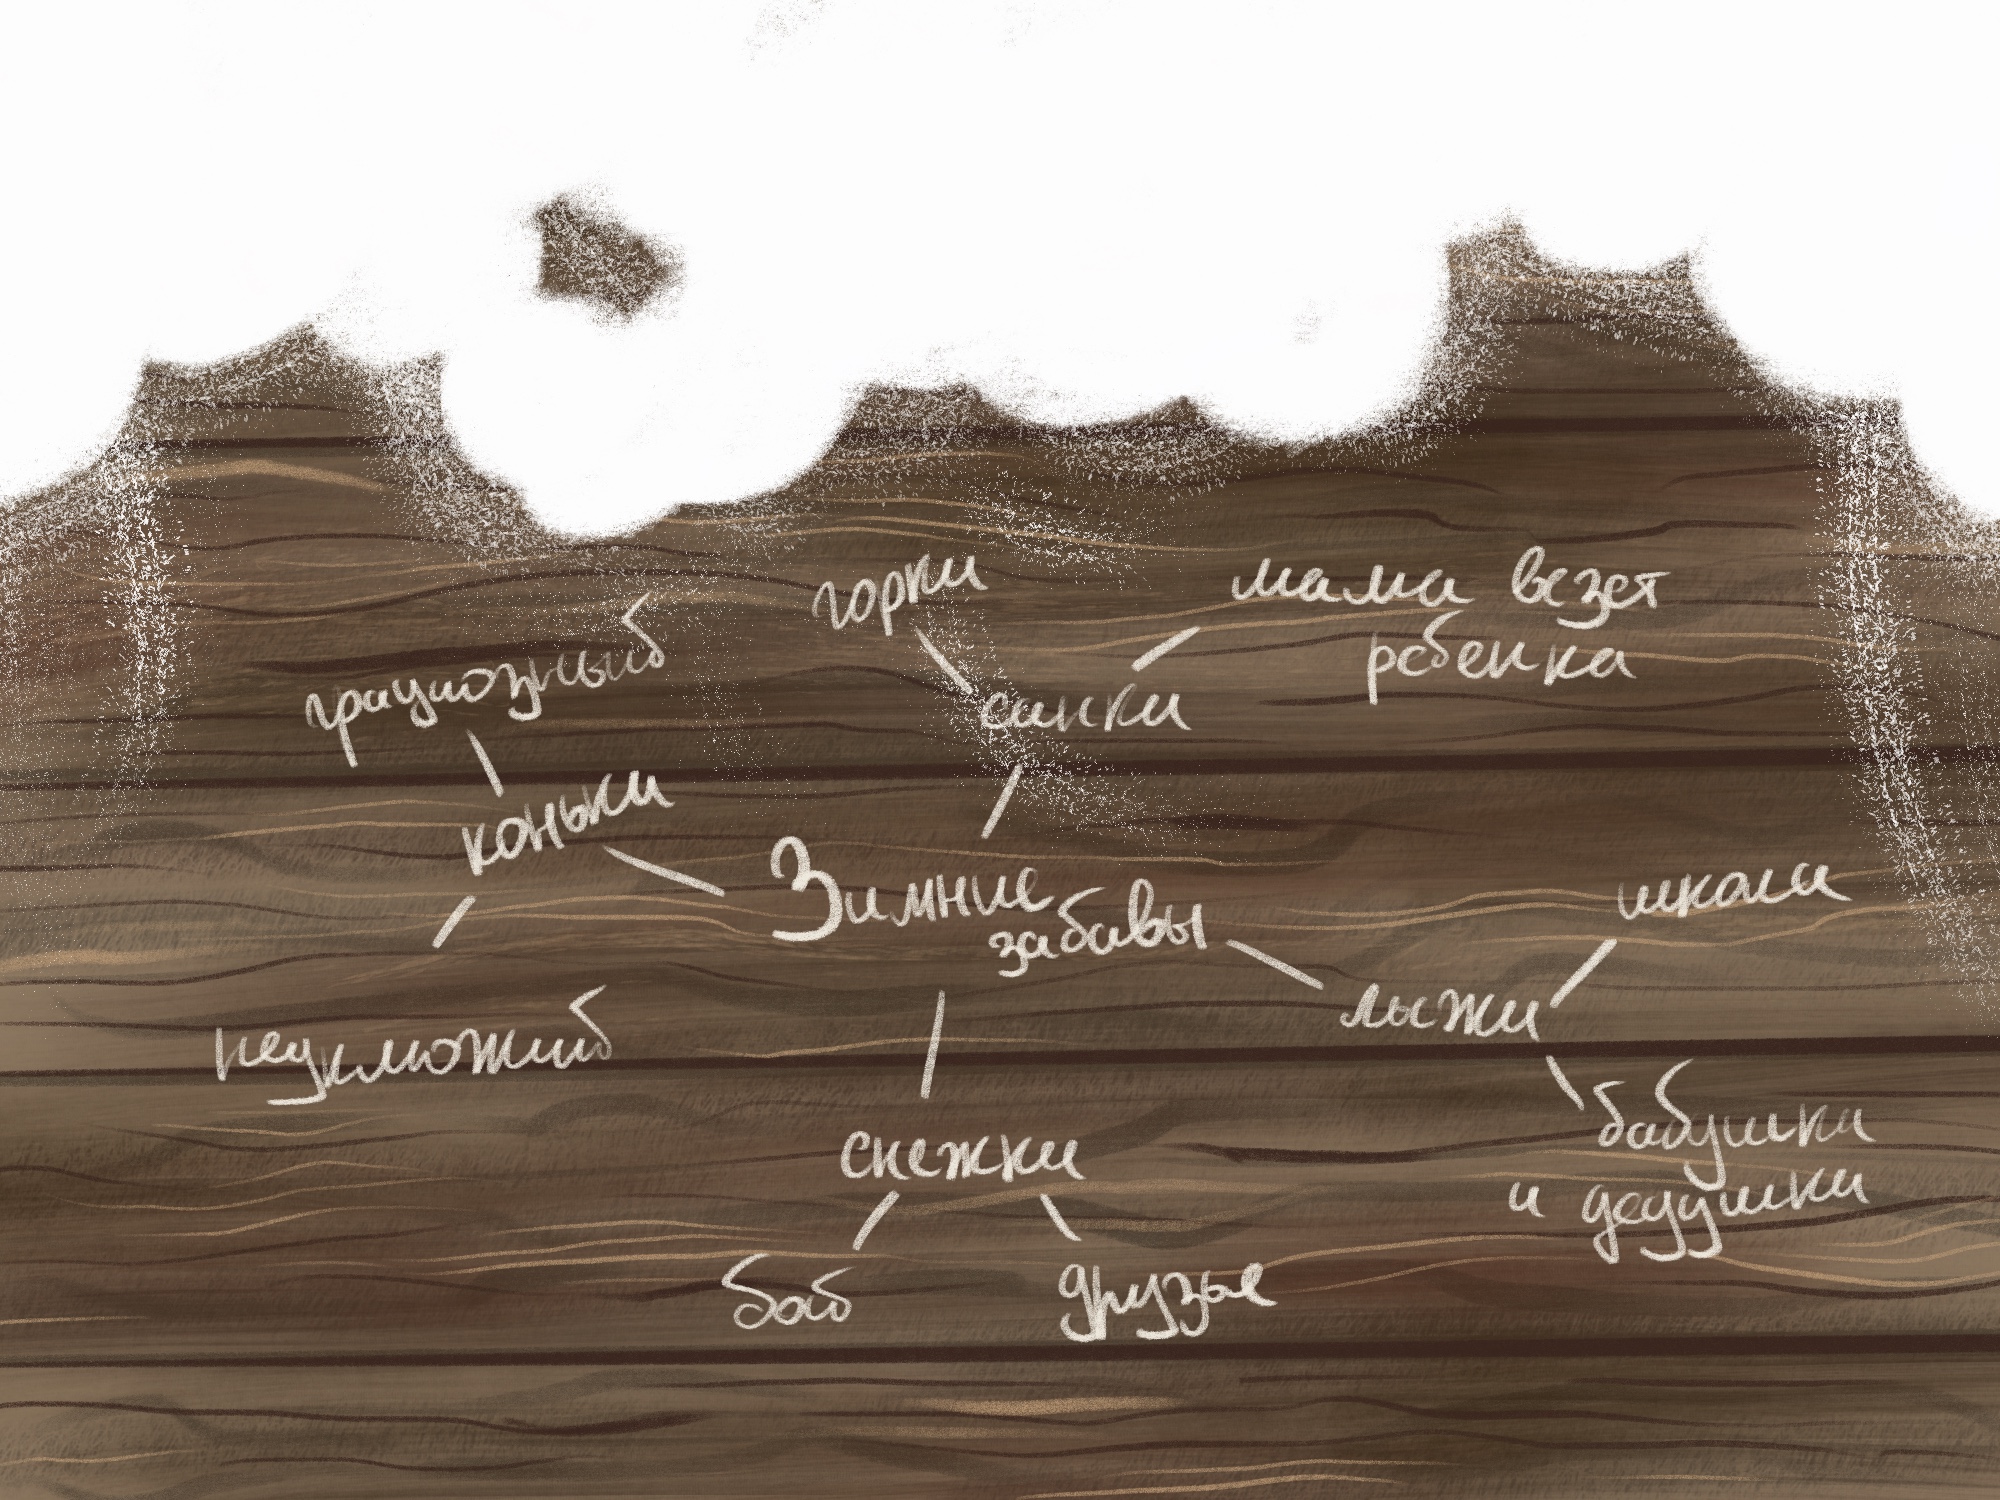 горки
мама везет
ребенка
грациозный
санки
коньки
Зимние
забавы
школа
лыжи
неуклюжий
бабушки
и дедушки
снежки
боб
друзье